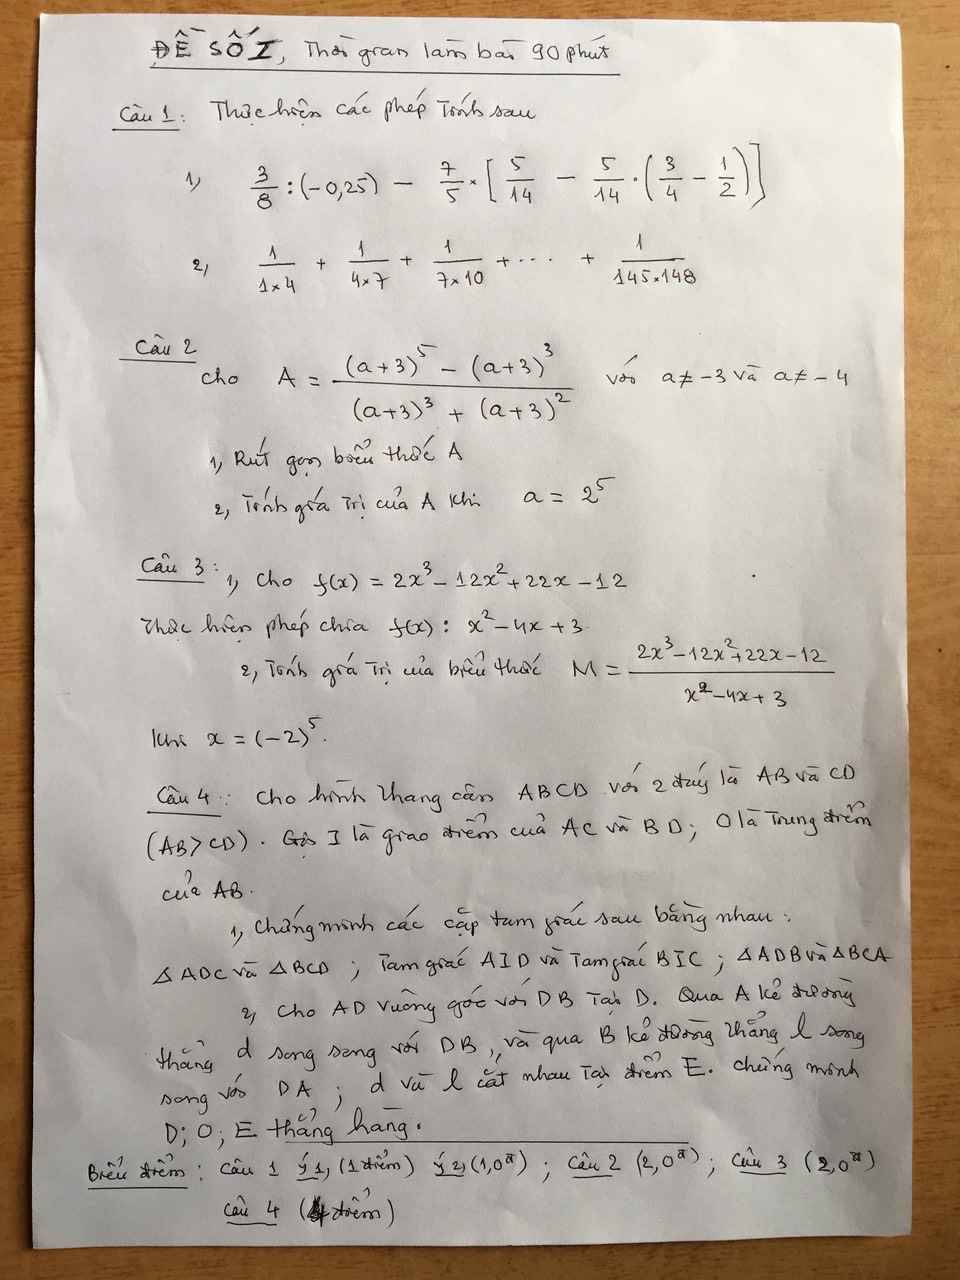 ĐỀ SỐ I, Thời gian làm bài 90 phút
Câu 1: Thực hiện các phép tính sau
1, 3/8 : (-0,25) - 7/5 × [5/14 - 5/14 . (3/4 - 1/2)]
2, 1/(1×4) + 1/(4×7) + 1/(7×10) + ... + 1/(145×148)
Câu 2
cho A = ((a+3)^5 - (a+3)^3)/((a+3)^3 + (a+3)^2) với a ≠ -3 và a ≠ -4
1, Rút gọn biểu thức A
2, Tính giá trị của A khi a = 2^5
Câu 3 : 1, Cho f(x) = 2x^3 - 12x^2 + 22x - 12
Thực hiện phép chia f(x) : x^2 - 4x + 3
2, Tính giá trị của biểu thức M = (2x^3 - 12x^2 + 22x - 12)/(x^2 - 4x + 3)
Khi x = (-2)^5.
Câu 4 : Cho hình thang cân ABCD với 2 đáy là AB và CD
(AB > CD). Gọi I là giao điểm của AC và BD; O là Trung điểm
của AB.
1, Chứng minh các cặp tam giác sau bằng nhau :
△ADC và △BCD ; Tam giác AID và Tam giác BIC ; △ADB và △BCA
2, Cho AD vuông góc với DB Tại D. Qua A kẻ đường
thẳng d song song với DB, và qua B kẻ đường thẳng l song
song với DA ; d và l cắt nhau Tại điểm E. chứng minh
D; O; E thẳng hàng.
Biểu điểm : Câu 1 ý 1, (1 điểm) ý 2, (1,0đ) ; Câu 2 (2,0đ) ; Câu 3 (2,0đ)
Câu 4 (4 điểm)